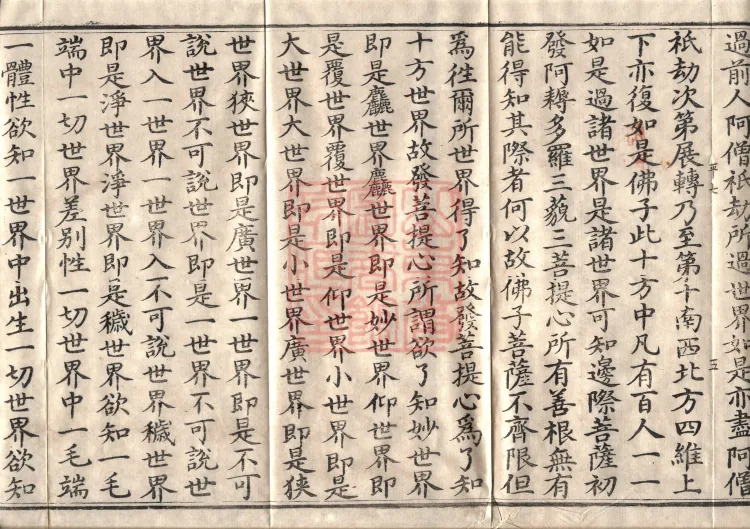 過前人阿僧祇劫所過世界如是亦盡阿僧
祇劫次第展轉乃至第十南西北方四維上
下亦復如是佛子此十方中凡有百人一一
如是過諸世界是諸世界可知邊際菩薩初
發阿耨多羅三藐三菩提心所有善根無有
能得知其際者何以故佛子菩薩不齊限但
為徃爾所世界得了知故發菩提心為了知
十方世界故發菩提心所謂欲了知妙世界
即是麤世界麤世界即是妙世界仰世界即
是覆世界覆世界即是仰世界小世界即是
大世界大世界即是小世界廣世界即是狹
世界狹世界即是廣世界一世界即是不可
說世界不可說世界即是一世界不可說世
界入一世界一世界入不可說世界穢世界
即是淨世界淨世界即是穢世界欲知一毛
端中一切世界差别性一切世界中一毛端
一體性欲知一世界中出生一切世界欲知
平七
五